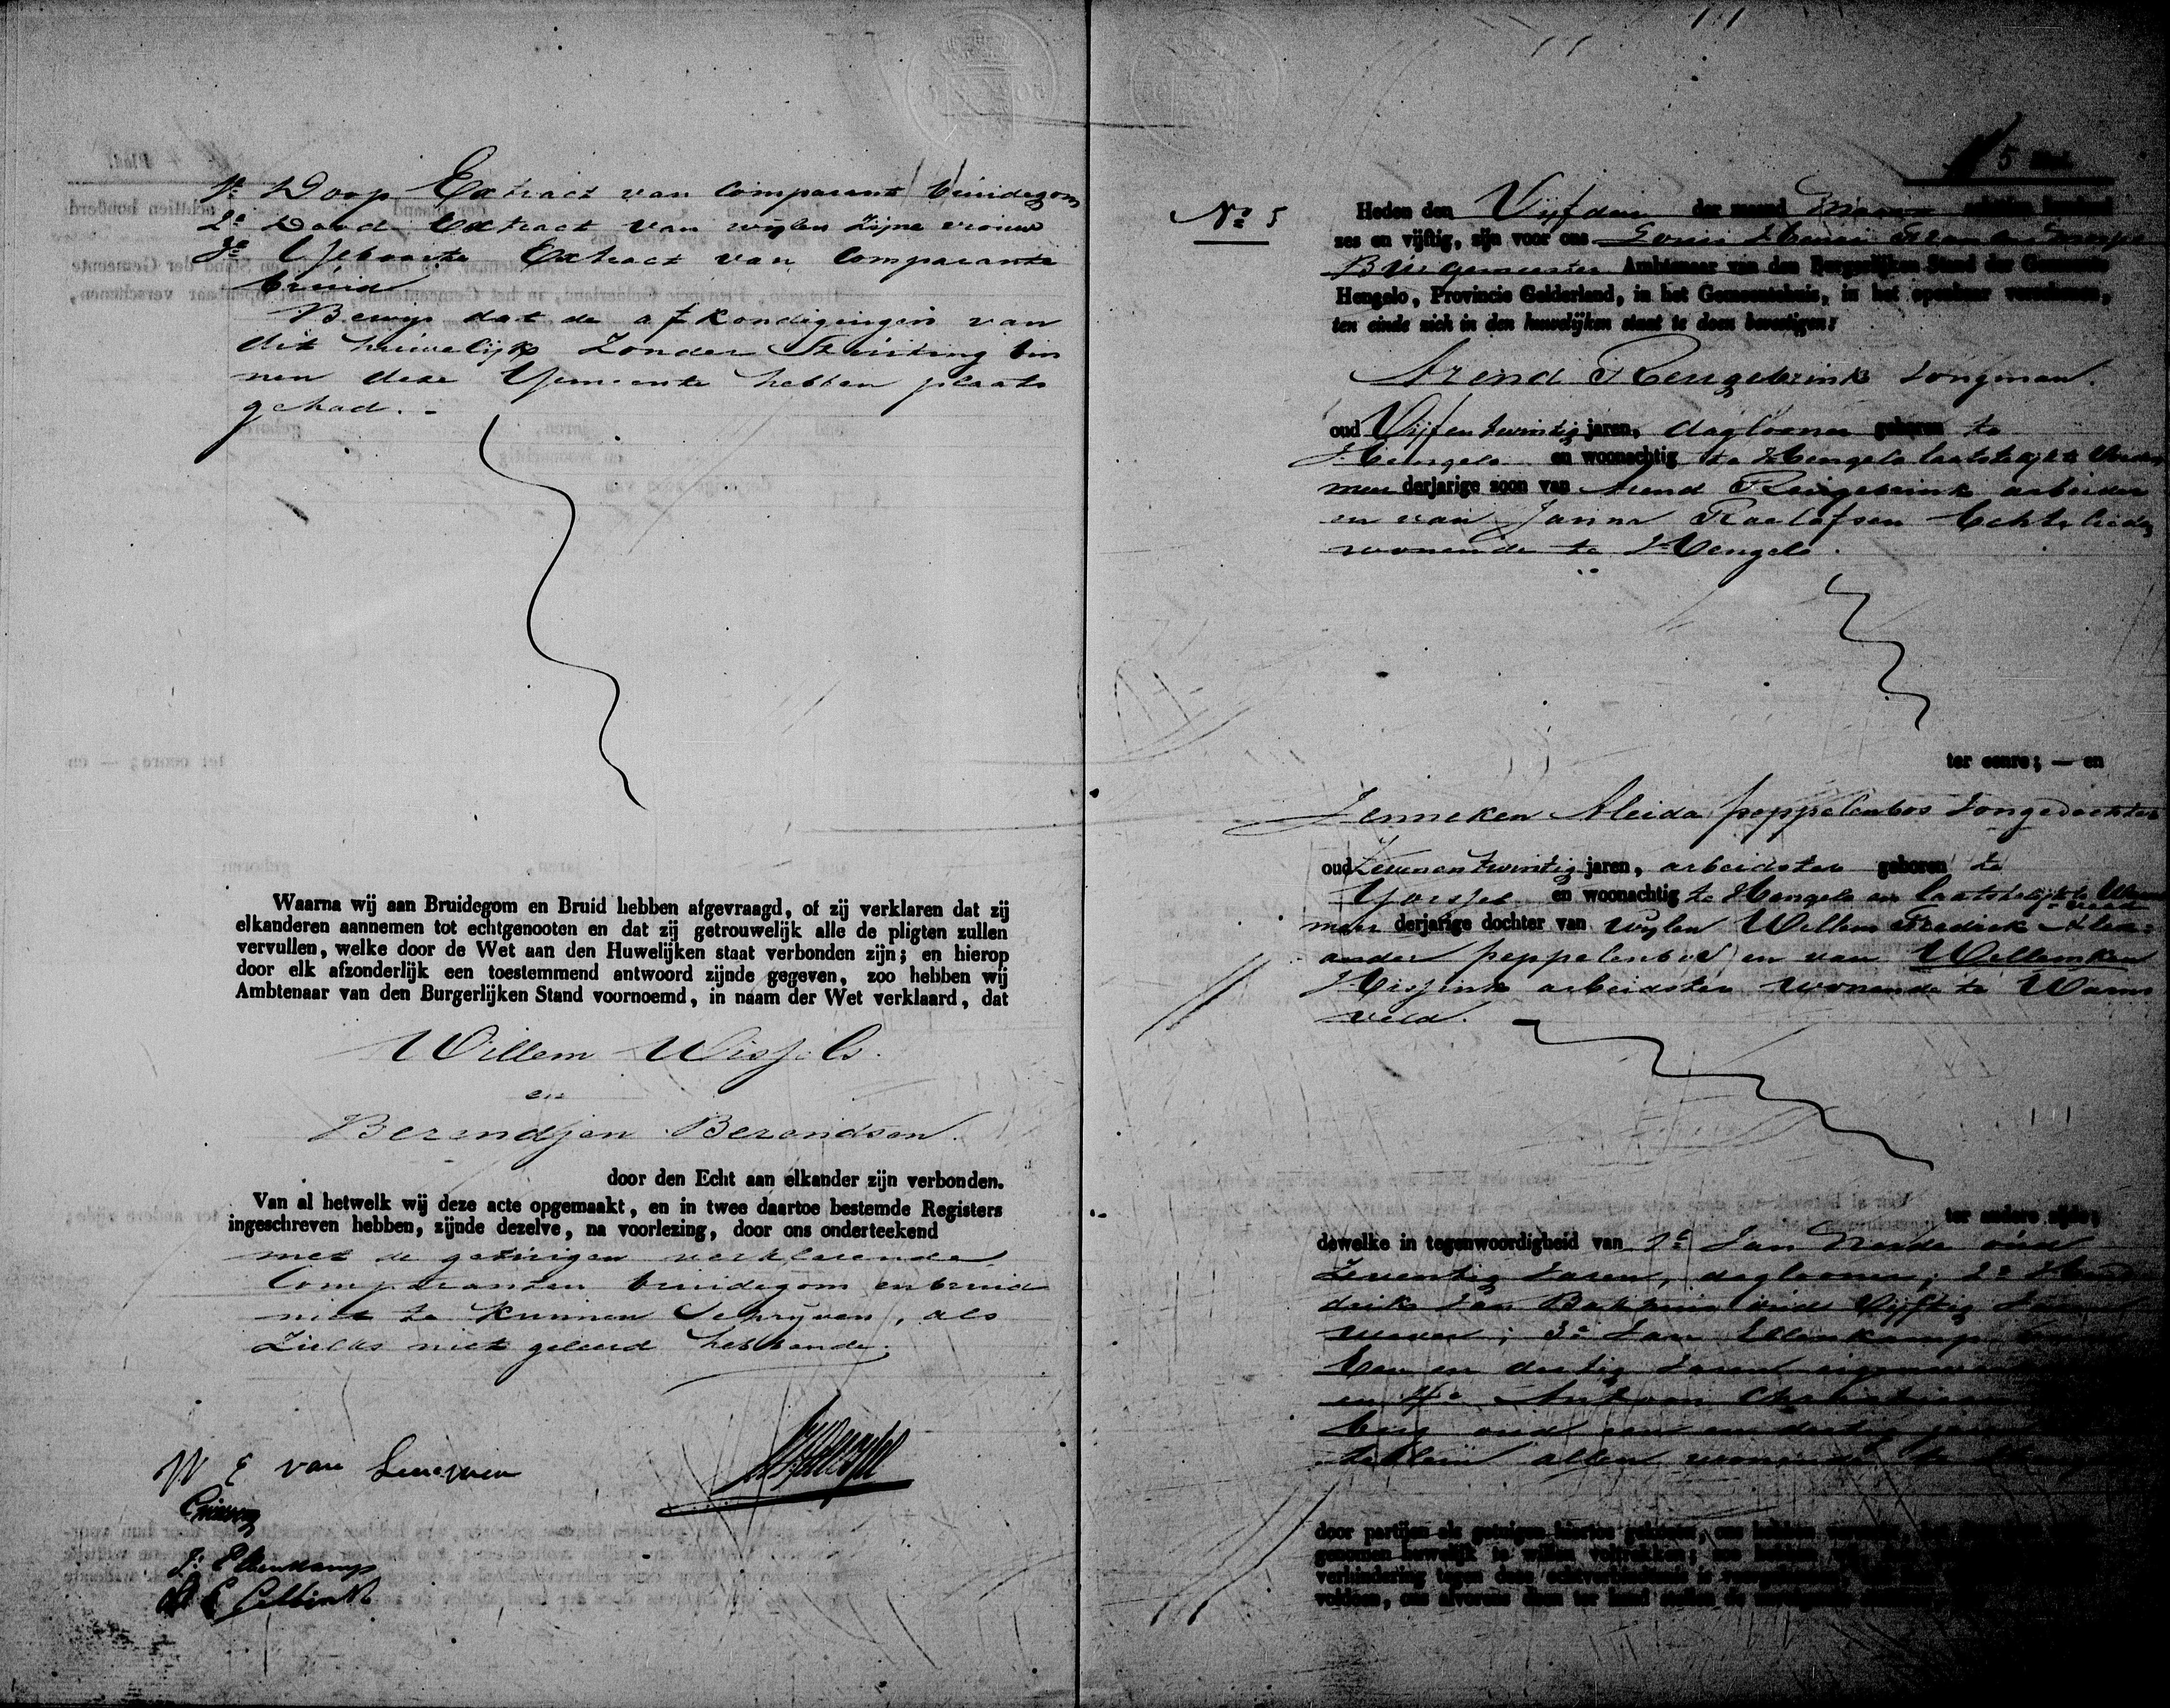 1e Doop Extract van Comparant bruidegom
2e Dood Extract van wijlen zijne vrouw
3e Geboorte Extract van Comparante
bruid
Bewijs dat de afkondigingen van
dit huwelijk zonder Stuiting bin
nen deze Gemeente hebben plaats
gehad. -
Waarna wij aan Bruidegom en Bruid hebben afgevraagd, of zij verklaren dat zij
elkanderen aannemen tot echtgenooten en dat zij getrouwelijk alle de pligten zullen
vervullen, welke door de Wet aan den Huwelijken staat verbonden zijn; en hierop
door elk afzonderlijk een toestemmend antwoord zijnde gegeven, zoo hebben wij
Ambtenaar van den Burgerlijken Stand voornoemd, in naam der Wet verklaard, dat
Willem Wissels.
en
Berendjen Berendsen.
door den Echt aan elkander zijn verbonden.
Van al hetwelk wij deze acte opgemaakt, en in twee daartoe bestemde Registers
ingeschreven hebben, zijnde dezelve, na voorlezing, door ons onderteekend
met de getuigen verklarende
Comparanten bruidegom en bruid
niet te kunnen Schrijven, als
Zulks niet geleerd hebbende.
W E van
J: Ellenkamp
5
No 5
Heden den Vijfden der maand Maart achttien honderd
zes en vijftig, zijn voor ons Louis Henri
Burgemeester Ambtenaar van den Burgerlijken Stand der Gemeente
Hengelo, Provincie Gelderland, in het Gemeentehuis, in het openbaar verschenen,
ten einde zich in den huwelijken staat te doen bevestigen:
Arend Reugebrink Jongman.
oud Vijfentwintig jaren, daglooner geboren te
Hengelo en woonachtig te Hengelo laatstelijk te
meerderjarige zoon van Arend Reugebrink arbeider
en van Janna Roelofsen Echtelieden
wonende te Hengelo.
ter eenre; — en
Jenneken Aleida peppelenbos Jongedochter
oud Zevenentwintig jaren, arbeidster geboren te
Gorssel en woonachtig te Hengelo en laatstelijk te
meerderjarige dochter van wijlen Willem Fredrik Alex=
ander peppelenbos en van Willemken
Hissink arbeidster wonende te Warns
veld.
ter andere zijde;
dewelke in tegenwoordigheid van 1e Jan oud
Zeventig Jaren, daglooner; 2e Hen
driks Jan oud Vijftig Jaren
wever; 3e Jan Ellenkamp
Een en dertig Jaren
en 4e Antoon
berg oud een en dertig
allen wonende te
door partijen als getuigen hiertoe gekozen, ons hebben
genomen huwelijk te willen voltrekken; zoo hebben
verhindering tegen deze echtverbindtenis
voldoen, ons alvorens doen ter hand stellen de